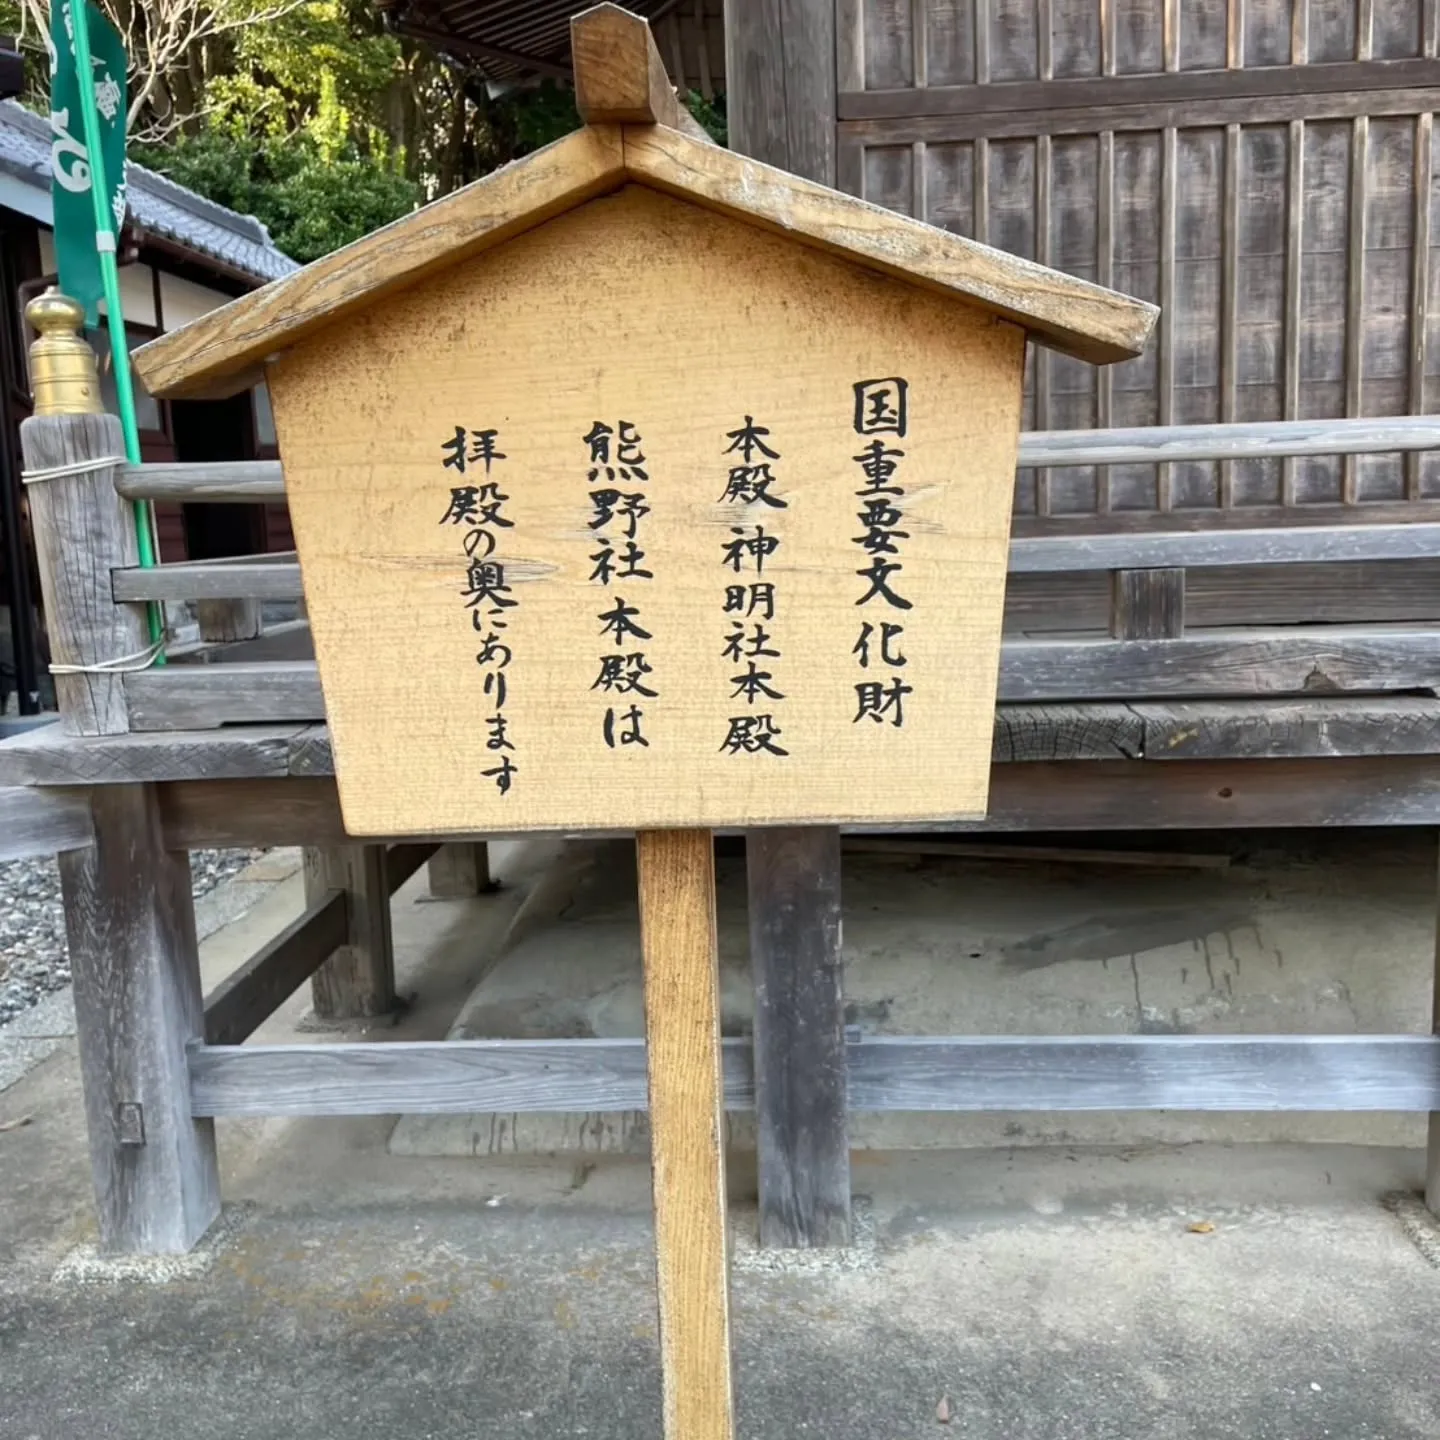 国重要文化財
本殿 神明社本殿
熊野社本殿は
拝殿の奥にあります